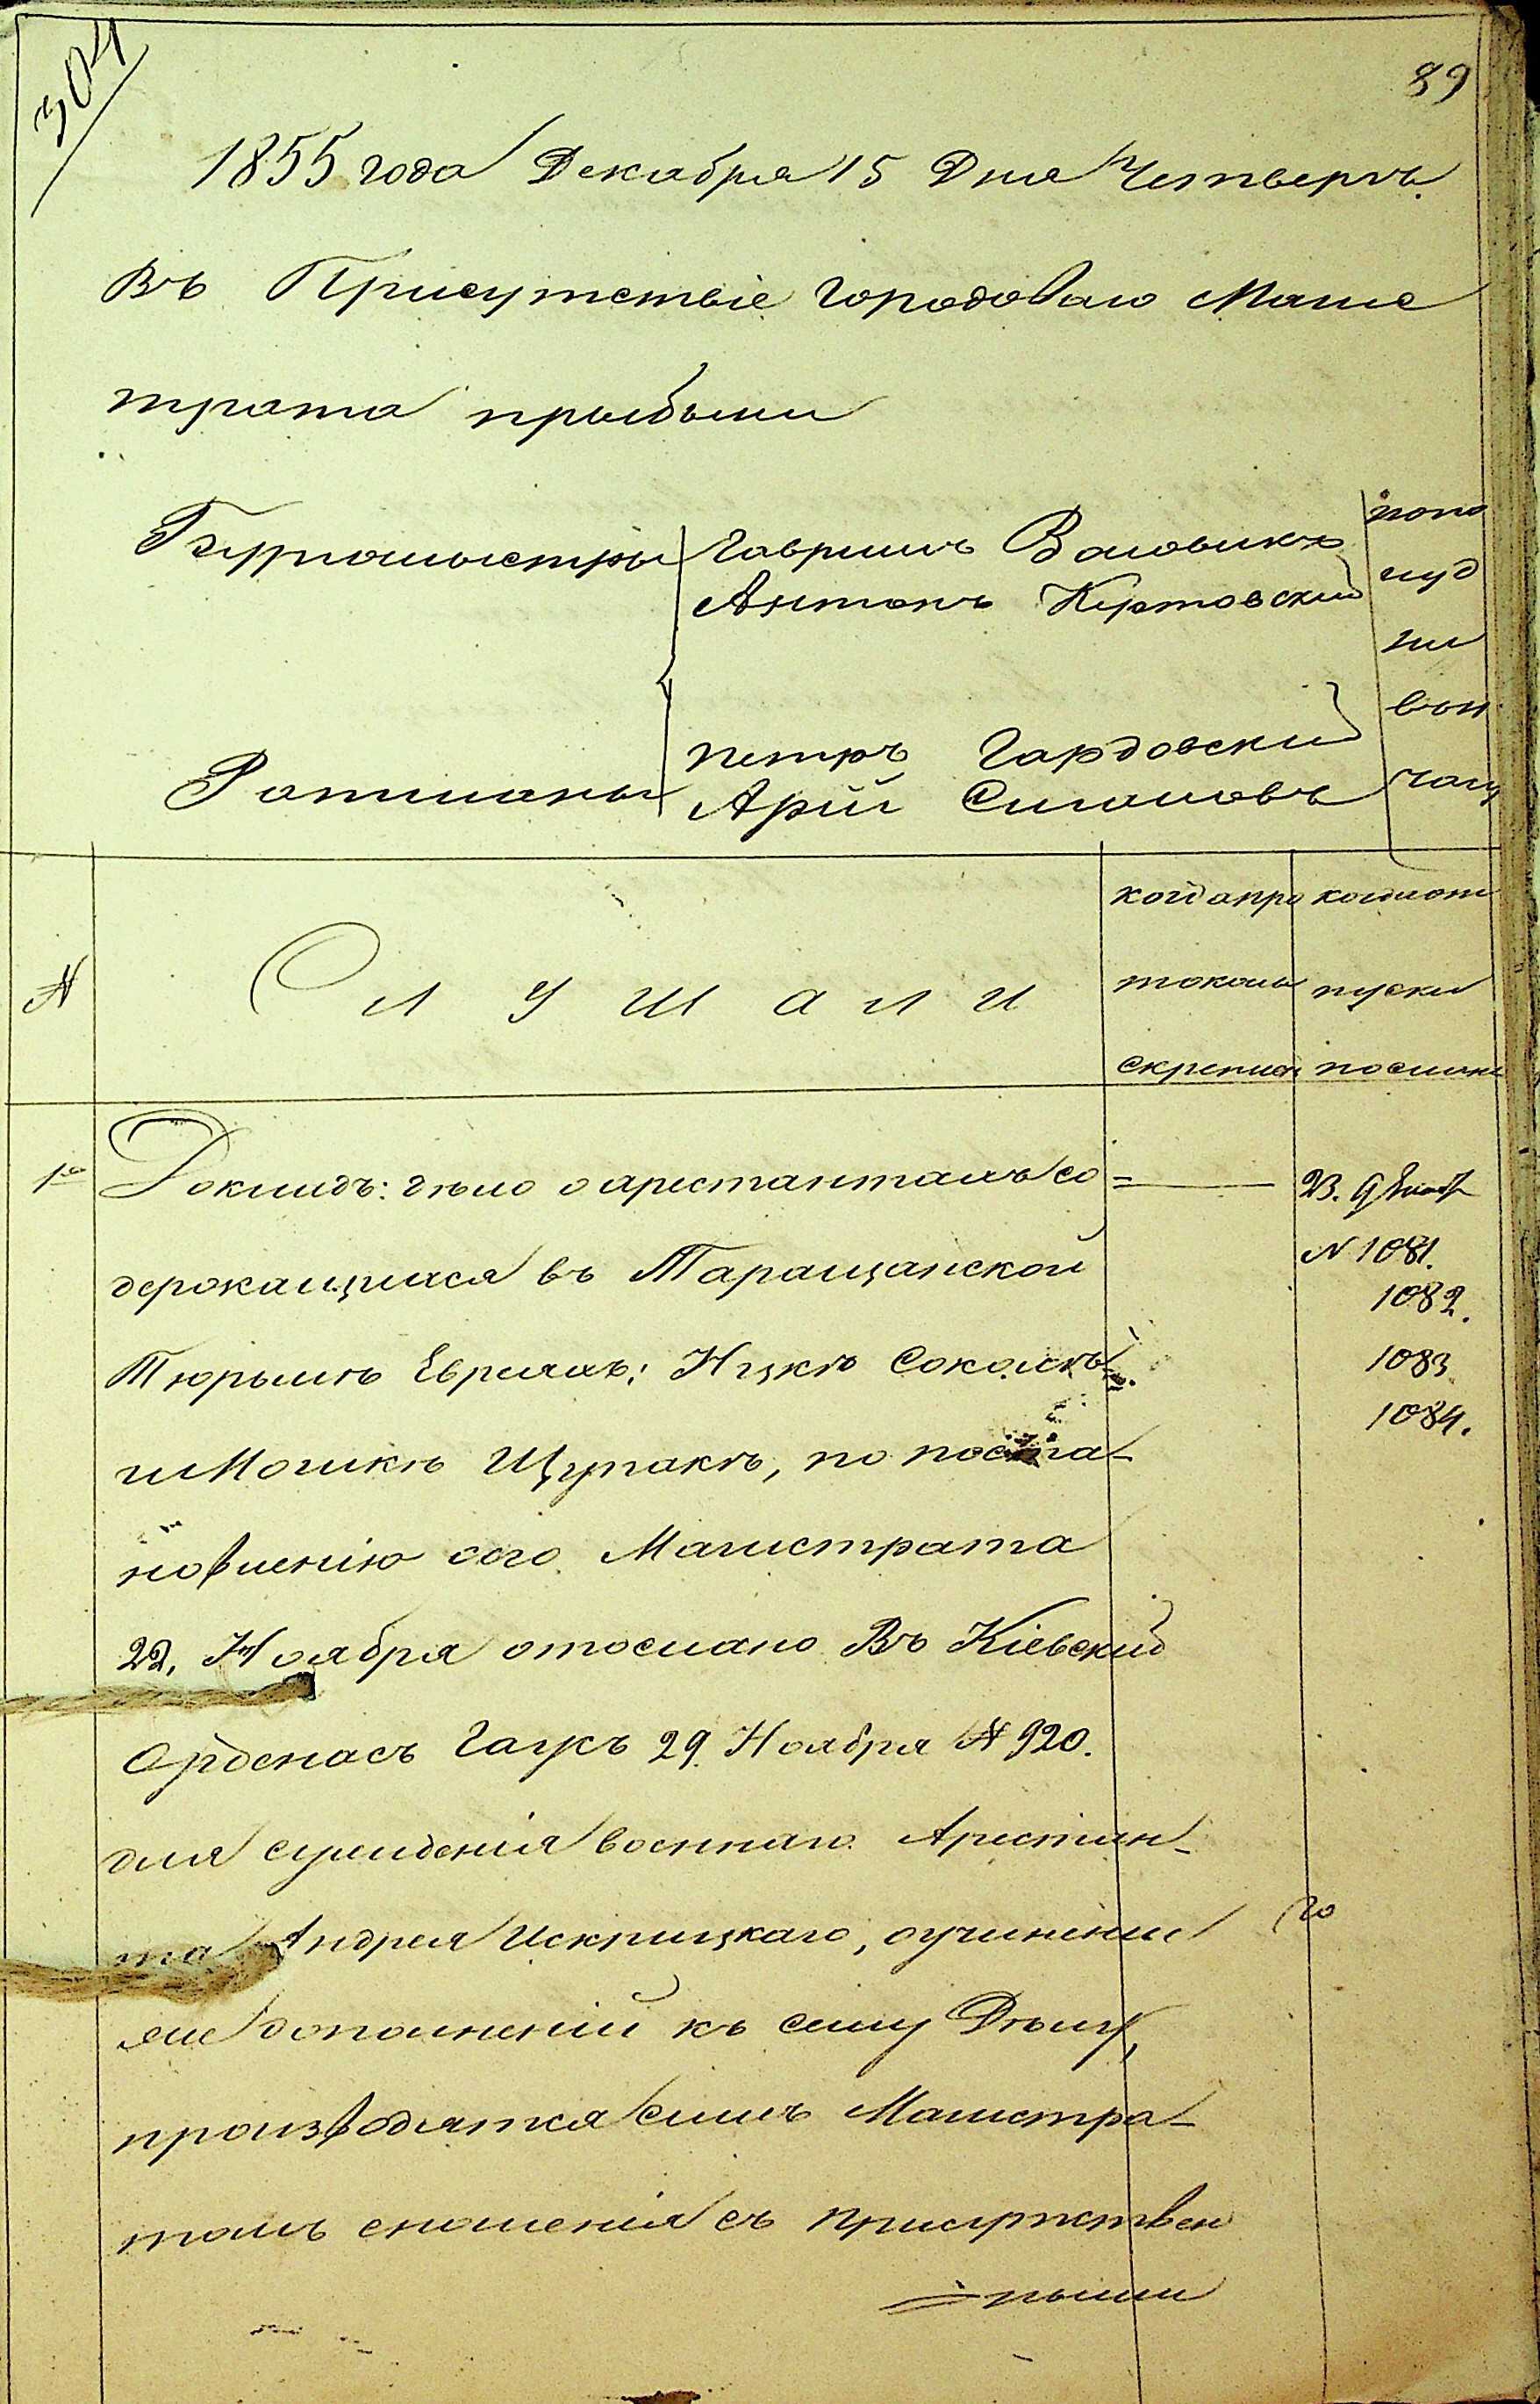 304
89
1855 года Декабря 15 Дня Четвергъ.
Въ Присутствіе Городоваго Магис
трата прыбыли
Бургомыстры Гаврилъ Воловикъ
Антонъ Куртовский
Ратманы Петръ Гардовский
Арій Симоновъ
попо
луд
ни
вън
часу
№
Слушали
когда про
токолъ
скреплен
когда от
пуски
посланы
1е Докладъ: дѣло о арестантахъ со
держащихся въ Таращанской
Тюрьмѣ Евреяхъ: Ицкѣ Соколѣ
и Мошкѣ Щупакѣ, по поста-
новленію сего Магистрата
22, Ноября отослано Въ Кіевский
Орденасъ Гаузъ 29 Ноября № 920.
для сужденія военнаго Арестан-
та Андрея Искрицкаго, о учинении
же дополненій къ сему Дѣлу,
производятся симъ Магистра-
томъ сношенія съ присутствен
=ными
23. Декаб
№ 1081.
1082.
1083
1084.